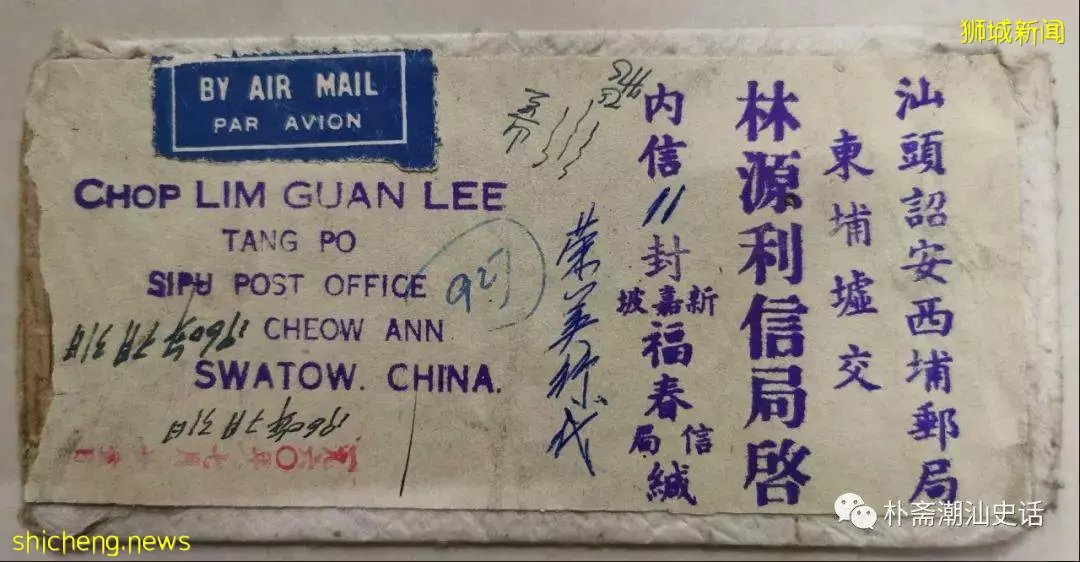 狮城新闻
BY AIR MAIL
PAR AVION
CHOP LIM GUAN LEE
TANG PO
SIPU POST OFFICE
CHEOW ANN
SWATOW. CHINA.
汕頭詔安西埔郵局
東埔墟交
林源利信局啓
内信11封
新嘉坡
福春
信局
緘
1960年7月31日
1960年7月31日
一九六〇年七月
朴斋潮汕史话
shicheng.news